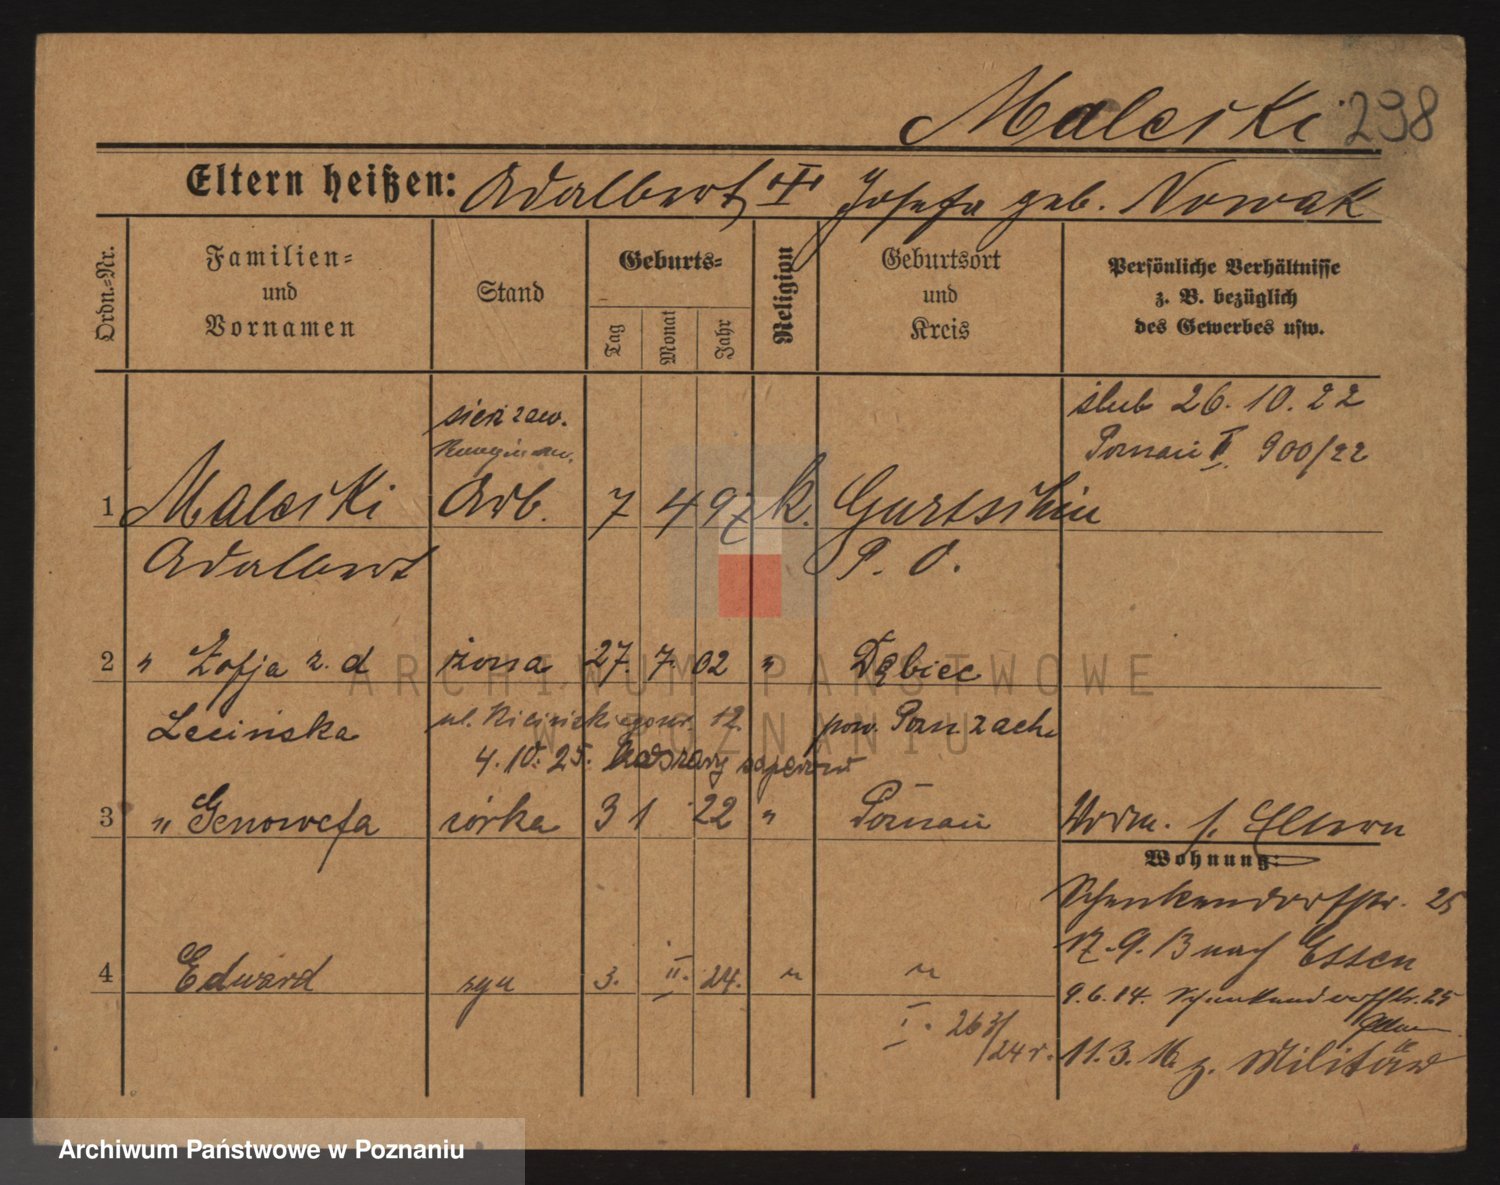 Maleski 298
Eltern heißen: Adalbert Josefa geb. Nowak
Ordn.-Nr.
Familien-
und
Vornamen
Stand
Geburts-
Tag
Monat
Jahr
Religion
Geburtsort
und
Kreis
Persönliche Verhältnisse
z. B. bezüglich
des Gewerbes usw.
ślub 26.10.22
Poznań II 900/22
sierż zaw.
1 Maleski Arb. 7 4 97 k. Gurtschin
Adalbert P. O.
2 " Zofja z. d żona 27. 7. 02 " Dębiec
Lecińska ul. 12. pow. Pozn zach
4.10.25. Koszary saperów
3 " Genowefa córka 3 1 22 " Poznań
Eltern
Wohnung:
Schenkendorfstr. 25
17.9.13 nach Essen
4 Edward syn 3. II. 24. " "
9.6.14. Schenkendorffstr. 25
Eltern
I. 263/24 r.
11.3.16 z. Militär
ARCHIWUM PAŃSTWOWE
W POZNANIU
Archiwum Państwowe w Poznaniu